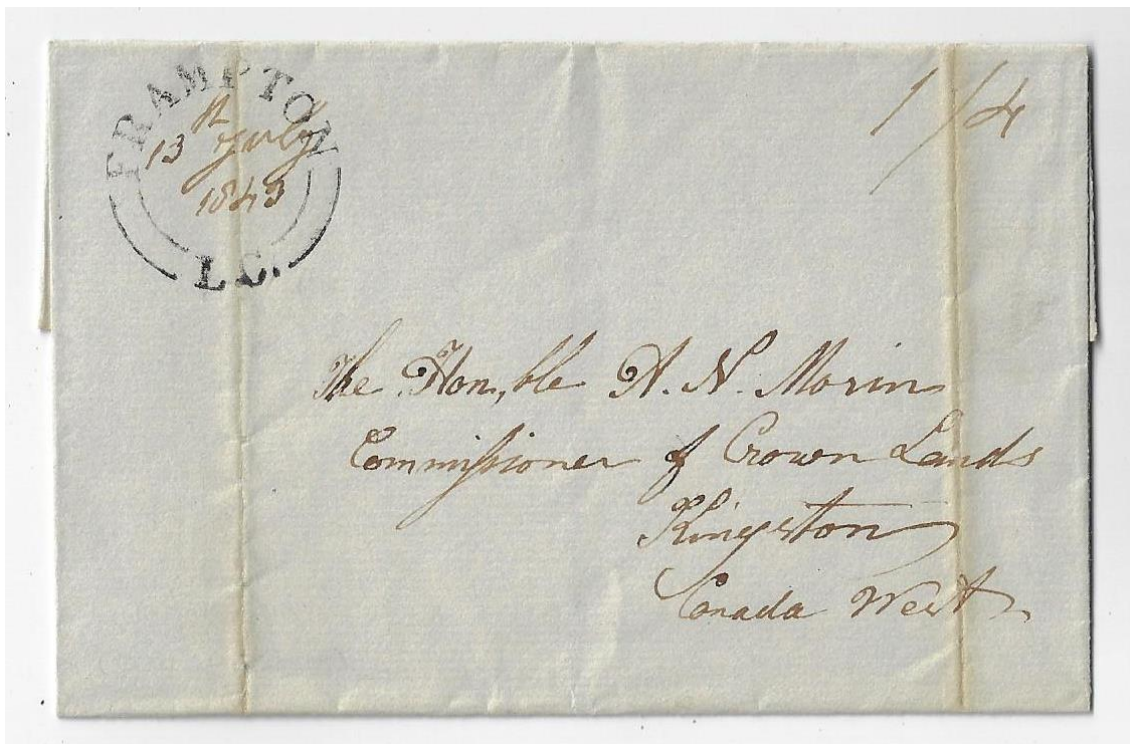 FRAMPTON
13th July
1843
L.C.
1/4
The Hon,ble A. N. Morin
Commissioner of Crown Lands
Kingston
Canada West